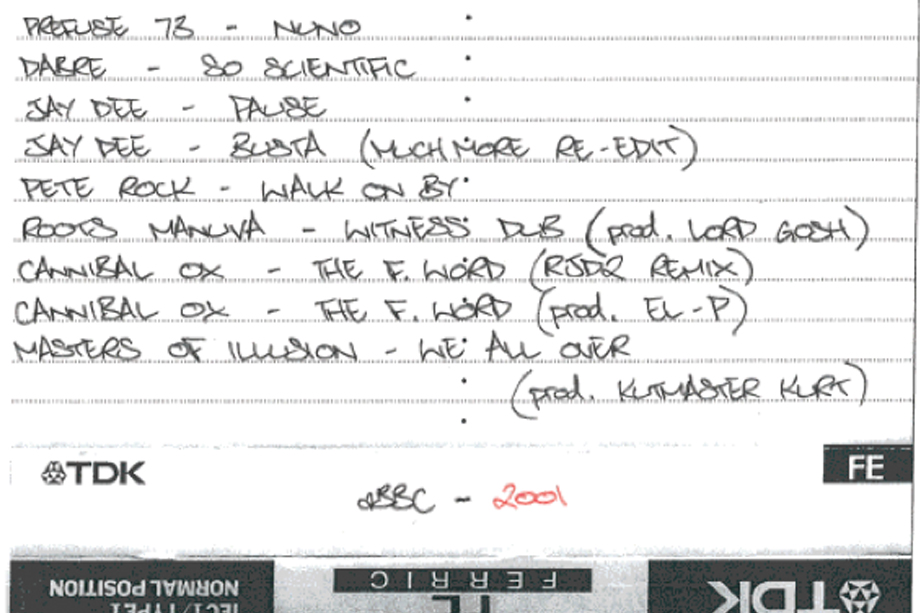 PREFUSE 73 - NUNO
DABRE - SO SCIENTIFIC
JAY DEE - PAUSE
JAY DEE - BUSTA (MUCHMORE RE-EDIT)
PETE ROCK - WALK ON BY
ROOTS MANUVA - WITNESS DUB (prod. LORD GOSH)
CANNIBAL OX - THE F. WORD (RJD2 REMIX)
CANNIBAL OX - THE F. WORD (prod. EL-P)
MASTERS OF ILLUSION - WE ALL OVER
(prod. KUTMASTER KURT)
TDK
FE
- 2001
FERRIC
TDK
NORMAL POSITION
IEC I/TYPE I